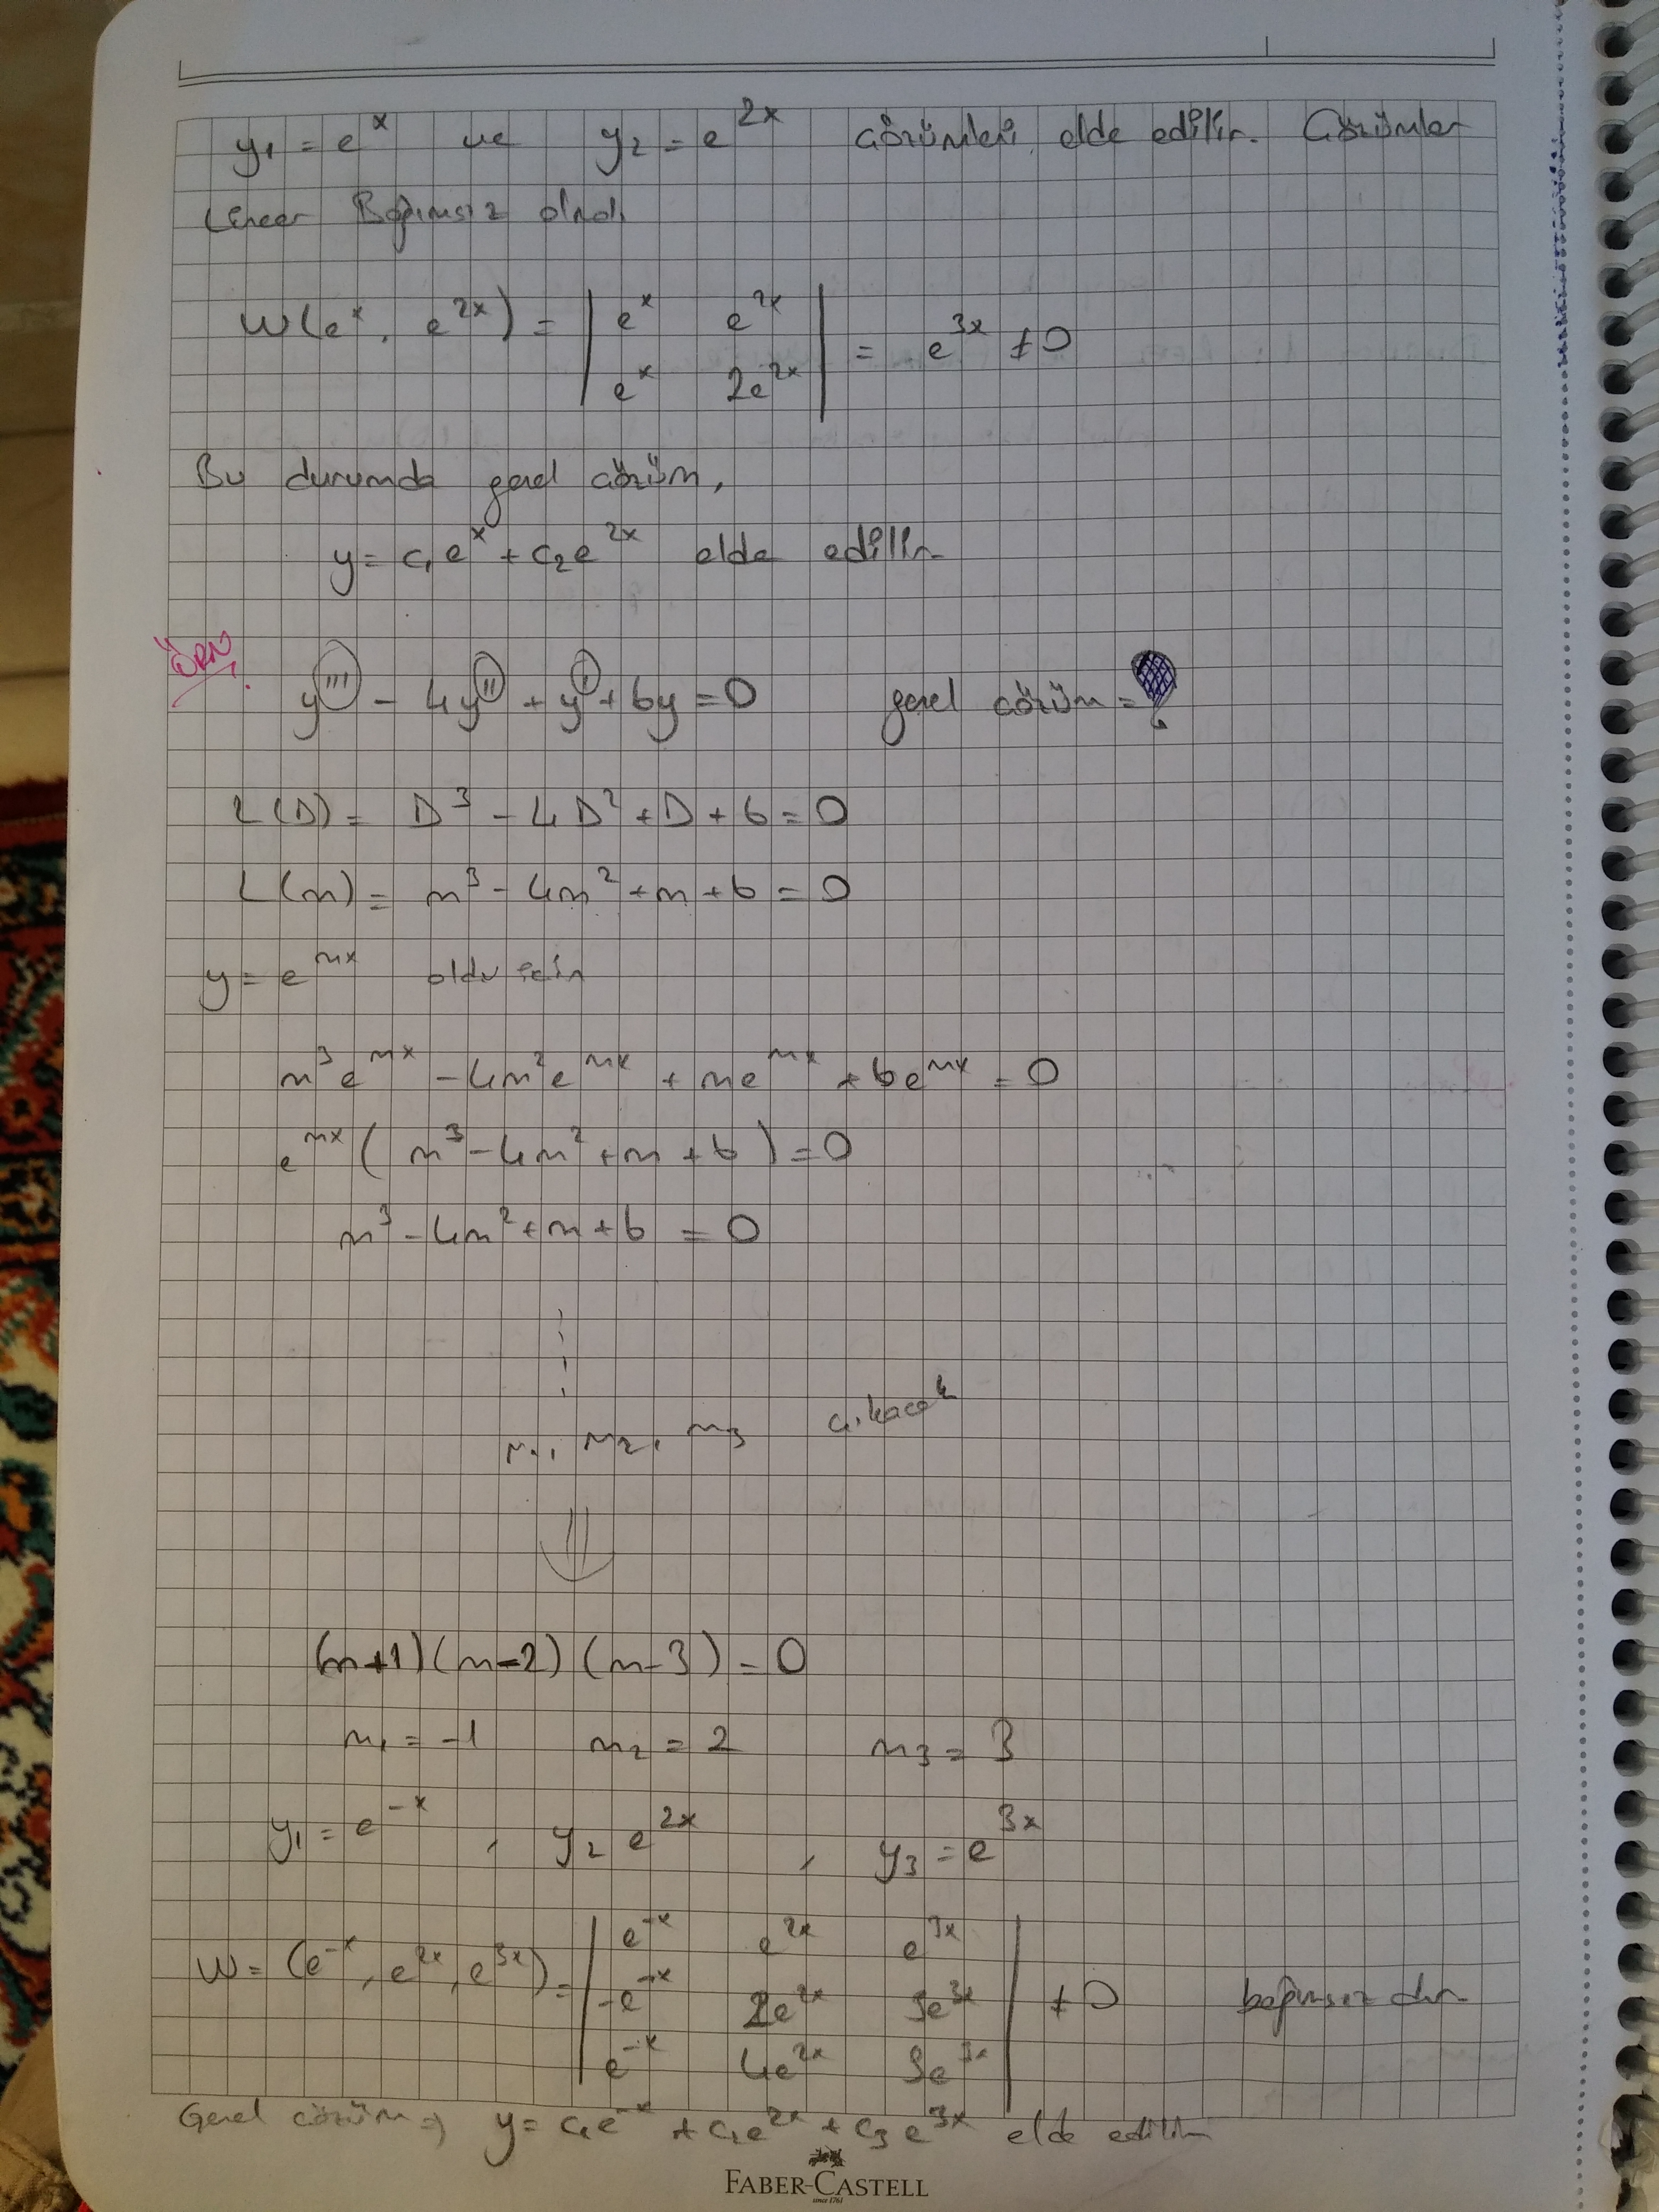 y₁ = eˣ ve y₂ = e²ˣ çözümleri elde edilir. Çözümler
Lineer Bağımsız olmalı
W(eˣ, e²ˣ) = | eˣ e²ˣ | = e³ˣ ≠ 0
| eˣ 2e²ˣ |
Bu durumda genel çözüm,
y = c₁eˣ + c₂e²ˣ elde edilir
ÖRN
y''' - 4y'' + y' + 6y = 0 genel çözüm = ?
L(D) = D³ - 4D² + D + 6 = 0
L(m) = m³ - 4m² + m + 6 = 0
y = eᵐˣ oldu için
m³eᵐˣ - 4m²eᵐˣ + meᵐˣ + 6eᵐˣ = 0
eᵐˣ( m³ - 4m² + m + 6 ) = 0
m³ - 4m² + m + 6 = 0
m₁, m₂, m₃ çıkacak
(m+1)(m-2)(m-3) = 0
m₁ = -1 m₂ = 2 m₃ = 3
y₁ = e⁻ˣ , y₂ e²ˣ , y₃ = e³ˣ
W = (e⁻ˣ, e²ˣ, e³ˣ) = | e⁻ˣ e²ˣ e³ˣ |
| -e⁻ˣ 2e²ˣ 3e³ˣ | ≠ 0 bağımsızdır
| e⁻ˣ 4e²ˣ 9e³ˣ |
Genel çözüm ⇒ y = c₁e⁻ˣ + c₂e²ˣ + c₃e³ˣ elde edilir
FABER-CASTELL
since 1761